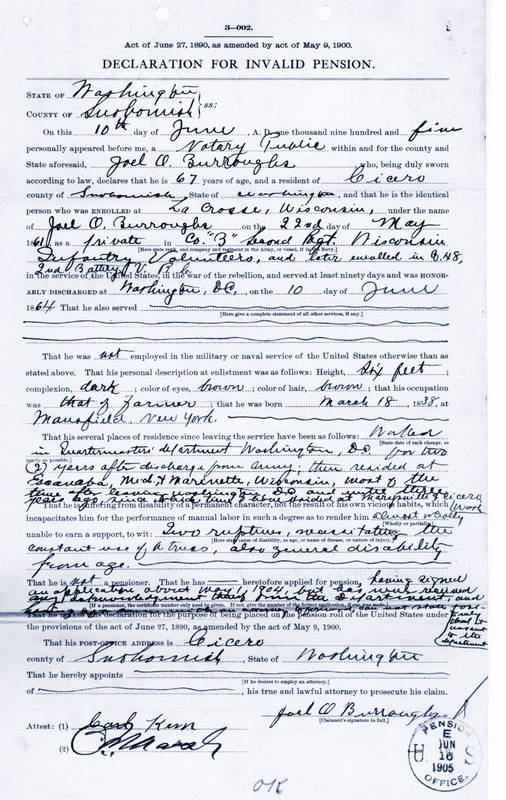 3—002.
Act of June 27, 1890, as amended by act of May 9, 1900.
DECLARATION FOR INVALID PENSION.
STATE OF Washington
COUNTY OF Snohomish } ss:
On this 10th day of June, A. D. one thousand nine hundred and five
personally appeared before me, a Notary Public within and for the county and
State aforesaid, Joel O. Burroughs who, being duly sworn
according to law, declares that he is 67 years of age, and a resident of Cicero
county of Snohomish, State of Washington, and that he is the identical
person who was ENROLLED at La Crosse, Wisconsin, under the name
of Joel O. Burroughs on the 22nd day of May
1861 as a private in Co. "B" Second Rgt. Wisconsin
[Here state rank, company and regiment in the Army, or vessel, if in the Navy.]
Infantry, Volunteers, and later enrolled in G. 48,
2nd Battery V. R. C.
in the service of the United States, in the war of the rebellion, and served at least ninety days and was HONOR-
ABLY DISCHARGED at Washington, D.C., on the 10 day of June
1864 That he also served
[Here give a complete statement of all other services, if any.]
That he was not employed in the military or naval service of the United States otherwise than as
stated above. That his personal description at enlistment was as follows: Height, six feet;
complexion, dark; color of eyes, brown; color of hair, brown; that his occupation
was that of Farmer; that he was born March 18, 1838, at
Mansfield, New York.
That his several places of residence since leaving the service have been as follows: Worked
[State date of each change, as nearly as possible.]
in Quartermasters department Washington, D.C. for two
(2) years after discharge from Army; then resided at
Escanaba, Mich. & Marinette, Wisconsin, most of the
time after leaving Washington, D.C. and until
years ago, and since resided at & Cicero
That he is suffering from disability of a permanent character, not the result of his own vicious habits, which Wash
incapacitates him for the performance of manual labor in such a degree as to render him almost wholly
[Wholly or partially.]
unable to earn a support, to wit: Two ruptures, necessitating the
[Here state cause of disability, as age, or name of disease, or nature of injury.]
constant use of a truss, also general disability
from age.
That he is not a pensioner. That he has heretofore applied for pension, having signed
an application about 1904, but has never received
any acknowledgement from the Department, and
[If a pensioner, the certificate number only need be given. If not, give the number of the former application, if one was made.]
That he makes this declaration for the purpose of being placed on the pension roll of the United States under
the provisions of the act of June 27, 1890, as amended by the act of May 9, 1900.
That his POST-OFFICE ADDRESS is Cicero
county of Snohomish, State of Washington
That he hereby appoints
[If he desires to employ an attorney.]
of , his true and lawful attorney to prosecute his claim.
Joel O Burroughs
[Claimant's signature in full.]
Attest: (1) Kern
(2)
PENSION
E
U JUN S
16
1905
OFFICE.
OK